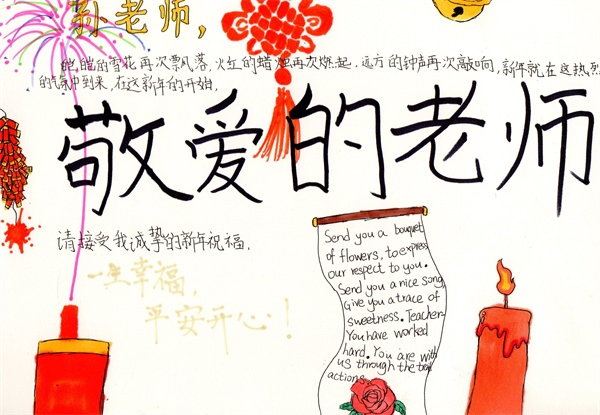 孙老师,
皑皑的雪花再次飘落,火红的蜡烛再次燃起,远方的钟声再次敲响,新年就在这热烈
的气氛中到来,在这新年的开始,
敬爱的老师
请接受我诚挚的新年祝福,
一生幸福,
平安开心!
Send you a bouquet
of flowers, to express
our respect to you.
Send you a nice song
Give you a trace of
sweetness. Teacher
You have worked
hard. You are with
us through the
actions